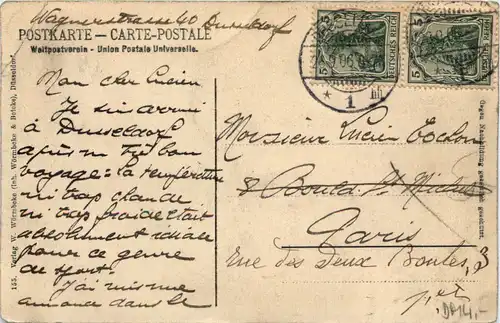 Wagnerstrasse 40 Dusseldorf
POSTKARTE — CARTE-POSTALE
Weltpostverein - Union Postale Universelle.
5 DEUTSCHES REICH 5
5 DEUTSCHES REICH 5
* 1
Mon cher Lucien
Je suis arrivé
à Dusseldorf
après un très bon
voyage: la température
ni trop chaude
ni trop froide était
absolument idéale
pour ce genre
de sport.
J'ai mis une
dans le
Monsieur Lucien
8 Bould St Michel
Paris
rue des Deux Boules, 3
155 Verlag W. Würmbcke (Inh. Würmbcke & Brincks), Düsseldorf
Gegen Nachbildung gesetzlich geschützt.